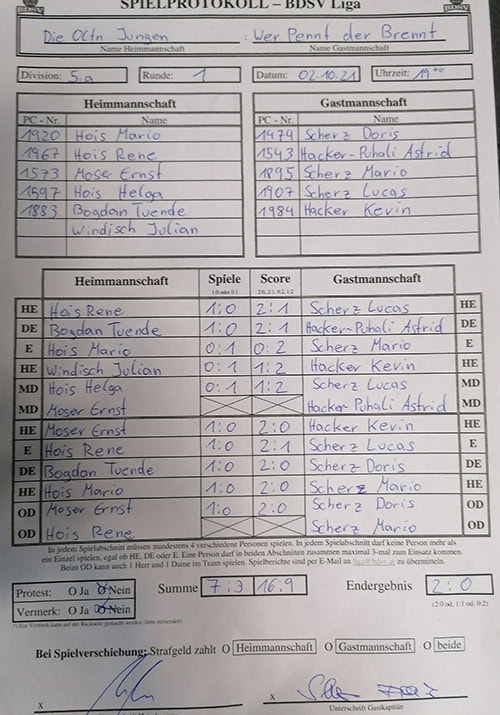 SPIELPROTOKOLL – BDSV Liga
Die Octn Jungen : Wer Pennt der Brennt
Name Heimmannschaft Name Gastmannschaft
Division: 5.a Runde: 1 Datum: 02.10.21 Uhrzeit: 19⁰⁰
Heimmannschaft Gastmannschaft
PC - Nr. Name PC - Nr. Name
1920 Hois Mario 1474 Scherz Doris
1967 Hois Rene 1543 Hacker-Puhali Astrid
1573 Moser Ernst 1895 Scherz Mario
1597 Hois Helga 1907 Scherz Lucas
1883 Bogdan Tuende 1984 Hacker Kevin
Windisch Julian
Heimmannschaft Spiele Score Gastmannschaft
1:0 oder 0:1 2:0, 2:1, 0:2, 1:2
HE Hois Rene 1:0 2:1 Scherz Lucas HE
DE Bogdan Tuende 1:0 2:1 Hacker-Puhali Astrid DE
E Hois Mario 0:1 0:2 Scherz Mario E
HE Windisch Julian 0:1 1:2 Hacker Kevin HE
MD Hois Helga 0:1 1:2 Scherz Lucas MD
MD Moser Ernst Hacker Puhali Astrid MD
HE Moser Ernst 1:0 2:0 Hacker Kevin HE
E Hois Rene 1:0 2:1 Scherz Lucas E
DE Bogdan Tuende 1:0 2:0 Scherz Doris DE
HE Hois Mario 1:0 2:0 Scherz Mario HE
OD Moser Ernst 1:0 2:0 Scherz Doris OD
OD Hois Rene Scherz Mario OD
In jedem Spielabschnitt müssen mindestens 4 verschiedene Personen spielen. In jedem Spielabschnitt darf keine Person mehr als
ein Einzel spielen, egal ob HE, DE oder E. Eine Person darf in beiden Abschnitten zusammen maximal 3-mal zum Einsatz kommen.
Beim OD kann auch 1 Herr und 1 Dame im Team spielen. Spielberichte sind per E-Mail an zu übermitteln.
Protest: O Ja O Nein Summe 7:3 16:9 Endergebnis 2:0
Vermerk: O Ja O Nein (2:0 od. 1:1 od. 0:2)
*) Ein Vermerk kann auf der Rückseite gemacht werden (bitte mitsenden)
Bei Spielverschiebung: Strafgeld zahlt O Heimmannschaft O Gastmannschaft O beide
X X
Unterschrift Gastkapitän